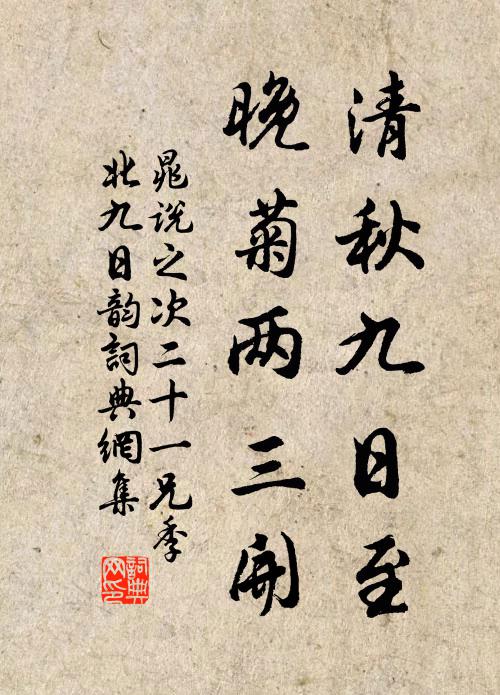 清秋九日至
晚菊两三开
晁说之次二十一兄季
北九日韵词典網集
詞典
网印